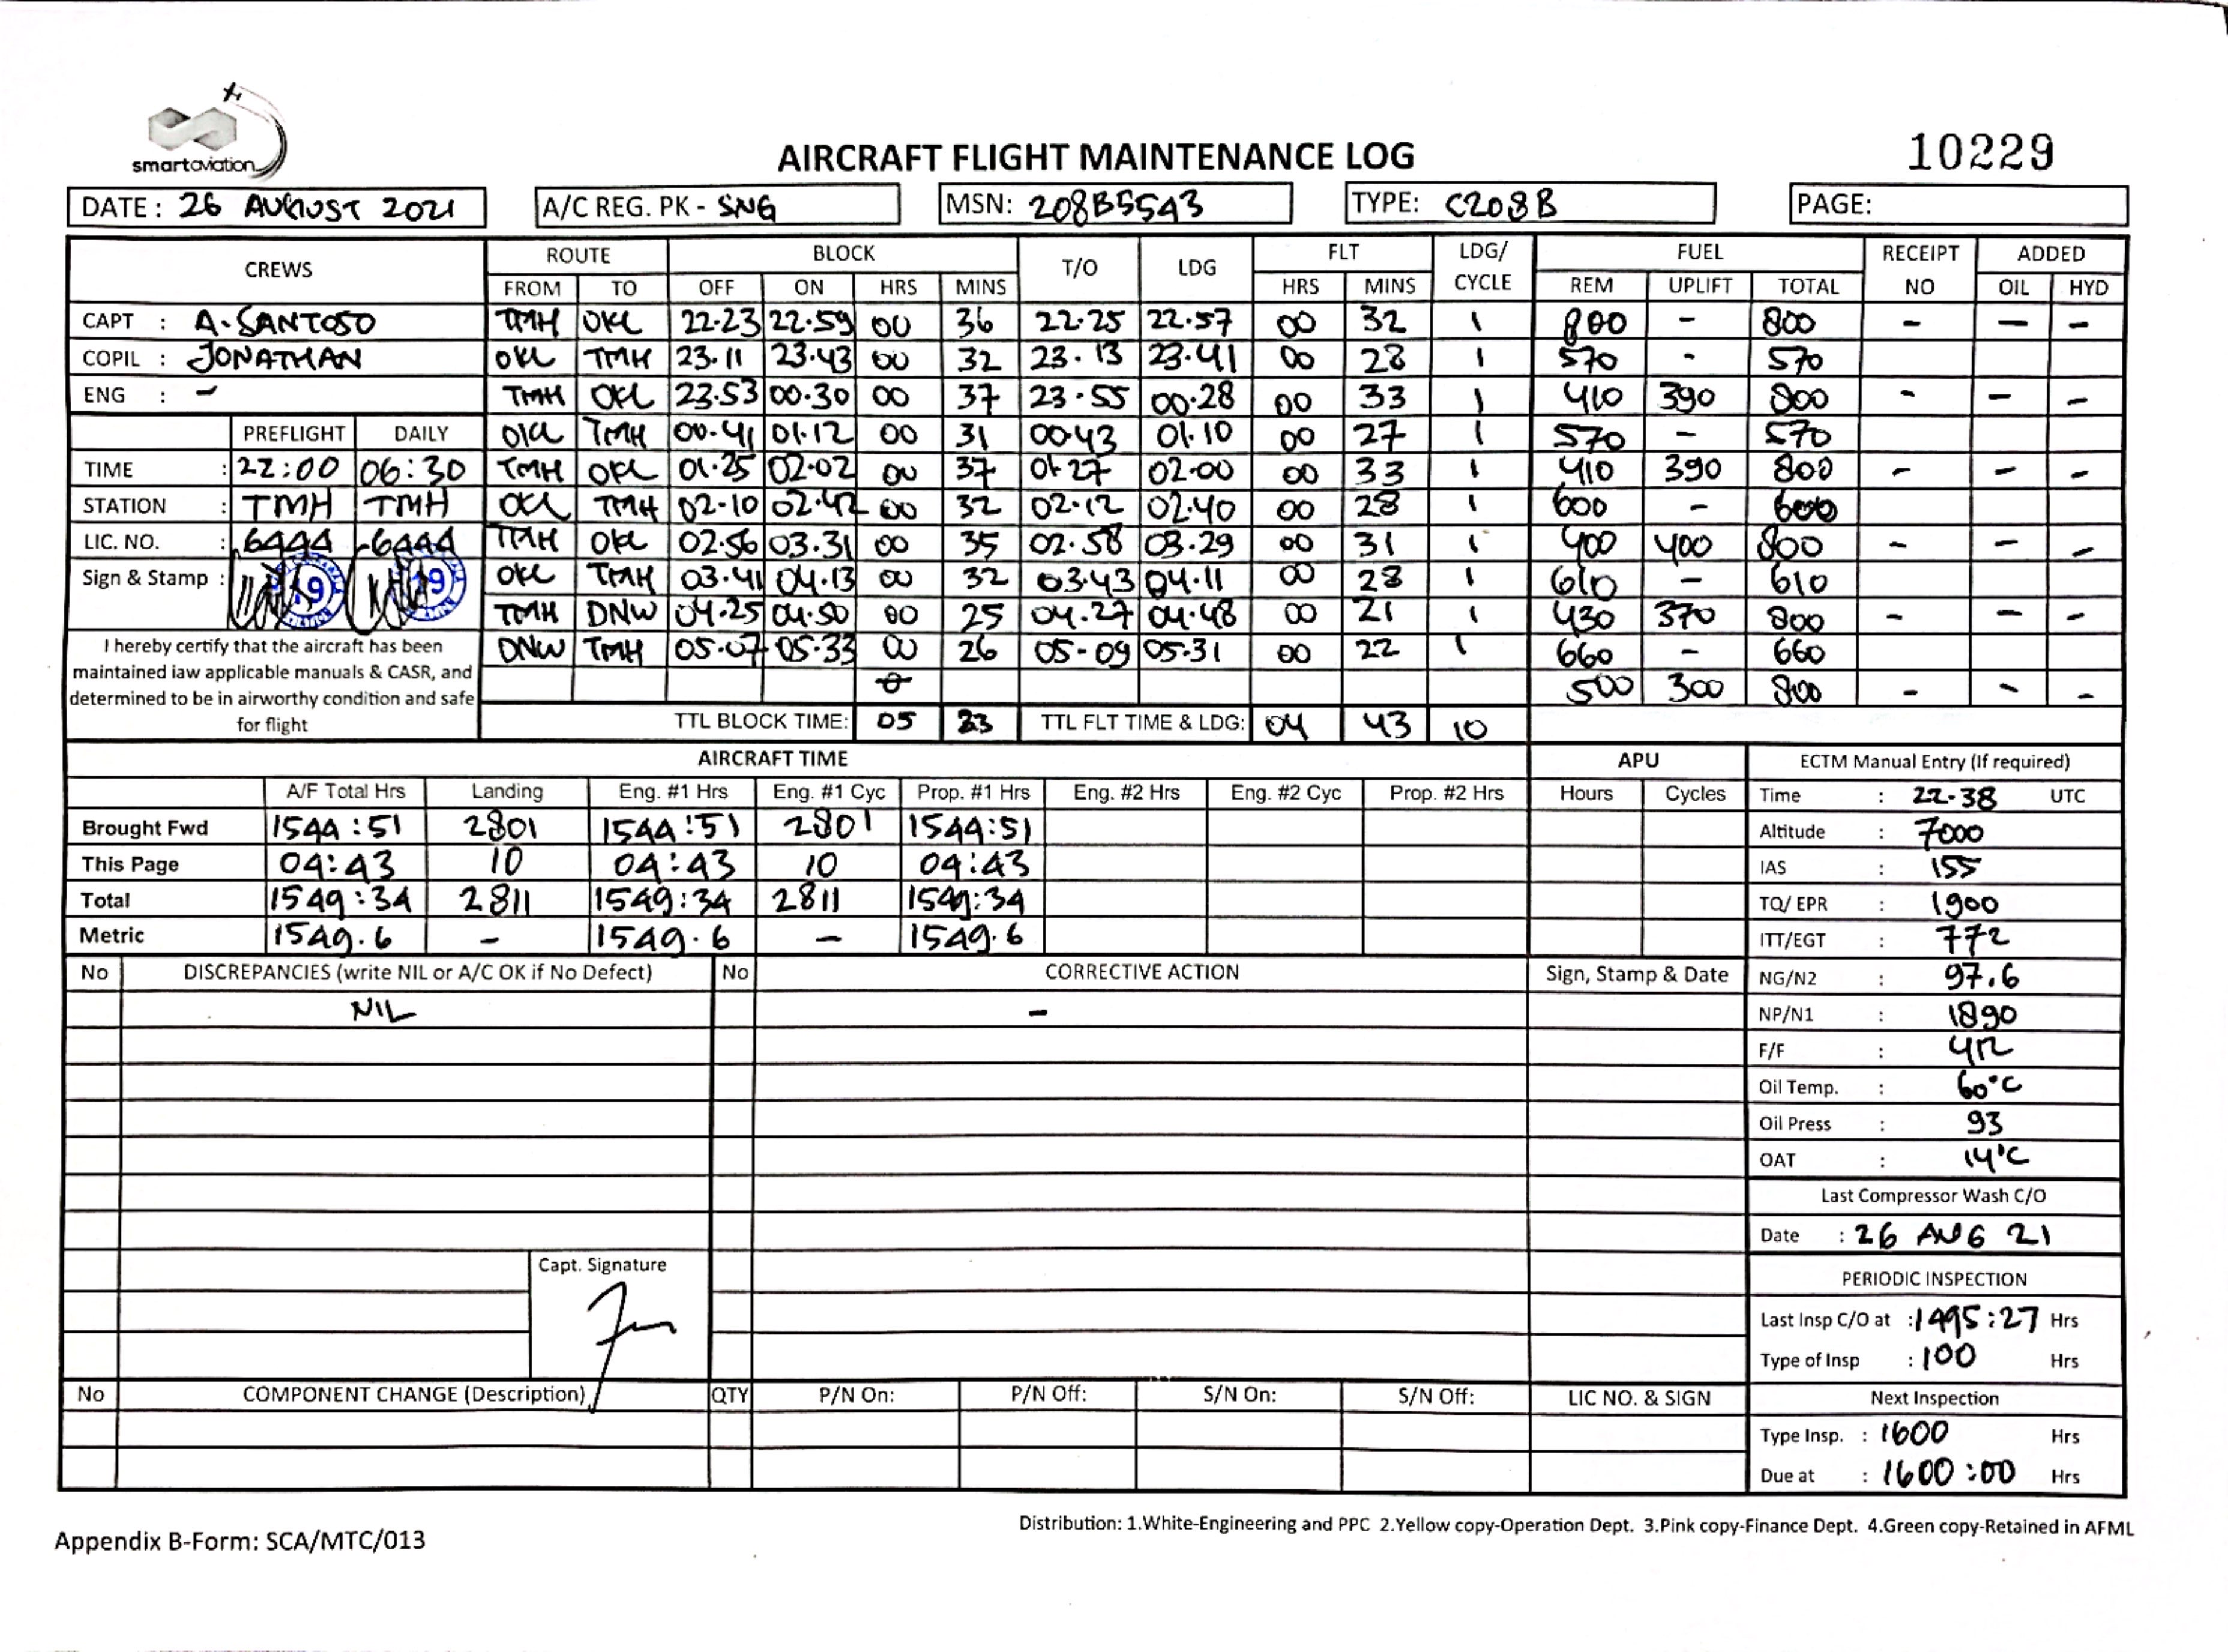 smartaviation
AIRCRAFT FLIGHT MAINTENANCE LOG
10229
DATE: 26 AUGUST 2021 A/C REG. PK - SNG MSN: 208B5543 TYPE: C208B PAGE:
CREWS ROUTE BLOCK T/O LDG FLT LDG/ CYCLE FUEL RECEIPT NO ADDED
FROM TO OFF ON HRS MINS HRS MINS REM UPLIFT TOTAL OIL HYD
CAPT : A. SANTOSO TMH OKL 22.23 22.59 00 36 22.25 22.57 00 32 1 800 - 800 - - -
COPIL : JONATHAN OKL TMH 23.11 23.43 00 32 23.13 23.41 00 28 1 570 - 570
ENG : - TMH OKL 23.53 00.30 00 37 23.55 00.28 00 33 1 410 390 800 - - -
PREFLIGHT DAILY OKL TMH 00.41 01.12 00 31 00.43 01.10 00 27 1 570 - 570
TIME : 22:00 06:30 TMH OKL 01.25 02.02 00 37 01.27 02.00 00 33 1 410 390 800 - - -
STATION : TMH TMH OKL TMH 02.10 02.42 00 32 02.12 02.40 00 28 1 600 - 600
LIC. NO. : 6444 6444 TMH OKL 02.56 03.31 00 35 02.58 03.29 00 31 1 400 400 800 - - -
Sign & Stamp : 19 19 OKL TMH 03.41 04.13 00 32 03.43 04.11 00 28 1 610 - 610
TMH DNW 04.25 04.50 00 25 04.27 04.48 00 21 1 430 370 800 - - -
DNW TMH 05.07 05.33 00 26 05-09 05.31 00 22 1 660 - 660
500 300 800 - - -
I hereby certify that the aircraft has been
maintained iaw applicable manuals & CASR, and
determined to be in airworthy condition and safe
for flight
TTL BLOCK TIME: 05 23 TTL FLT TIME & LDG: 04 43 10
AIRCRAFT TIME APU ECTM Manual Entry (If required)
A/F Total Hrs Landing Eng. #1 Hrs Eng. #1 Cyc Prop. #1 Hrs Eng. #2 Hrs Eng. #2 Cyc Prop. #2 Hrs Hours Cycles Time : 22.38 UTC
Brought Fwd 1544:51 2801 1544:51 2801 1544:51 Altitude : 7000
This Page 04:43 10 04:43 10 04:43 IAS : 155
Total 1549:34 2811 1549:34 2811 1549:34 TQ/ EPR : 1900
Metric 1549.6 - 1549.6 - 1549.6 ITT/EGT : 772
No DISCREPANCIES (write NIL or A/C OK if No Defect) No CORRECTIVE ACTION Sign, Stamp & Date NG/N2 : 97.6
NIL - NP/N1 : 1890
F/F : 412
Oil Temp. : 60°C
Oil Press : 93
OAT : 14°C
Last Compressor Wash C/O
Date : 26 AUG 21
Capt. Signature
PERIODIC INSPECTION
Last Insp C/O at : 1495:27 Hrs
Type of Insp : 100 Hrs
No COMPONENT CHANGE (Description) QTY P/N On: P/N Off: S/N On: S/N Off: LIC NO. & SIGN Next Inspection
Type Insp. : 1600 Hrs
Due at : 1600:00 Hrs
Distribution: 1.White-Engineering and PPC 2.Yellow copy-Operation Dept. 3.Pink copy-Finance Dept. 4.Green copy-Retained in AFML
Appendix B-Form: SCA/MTC/013